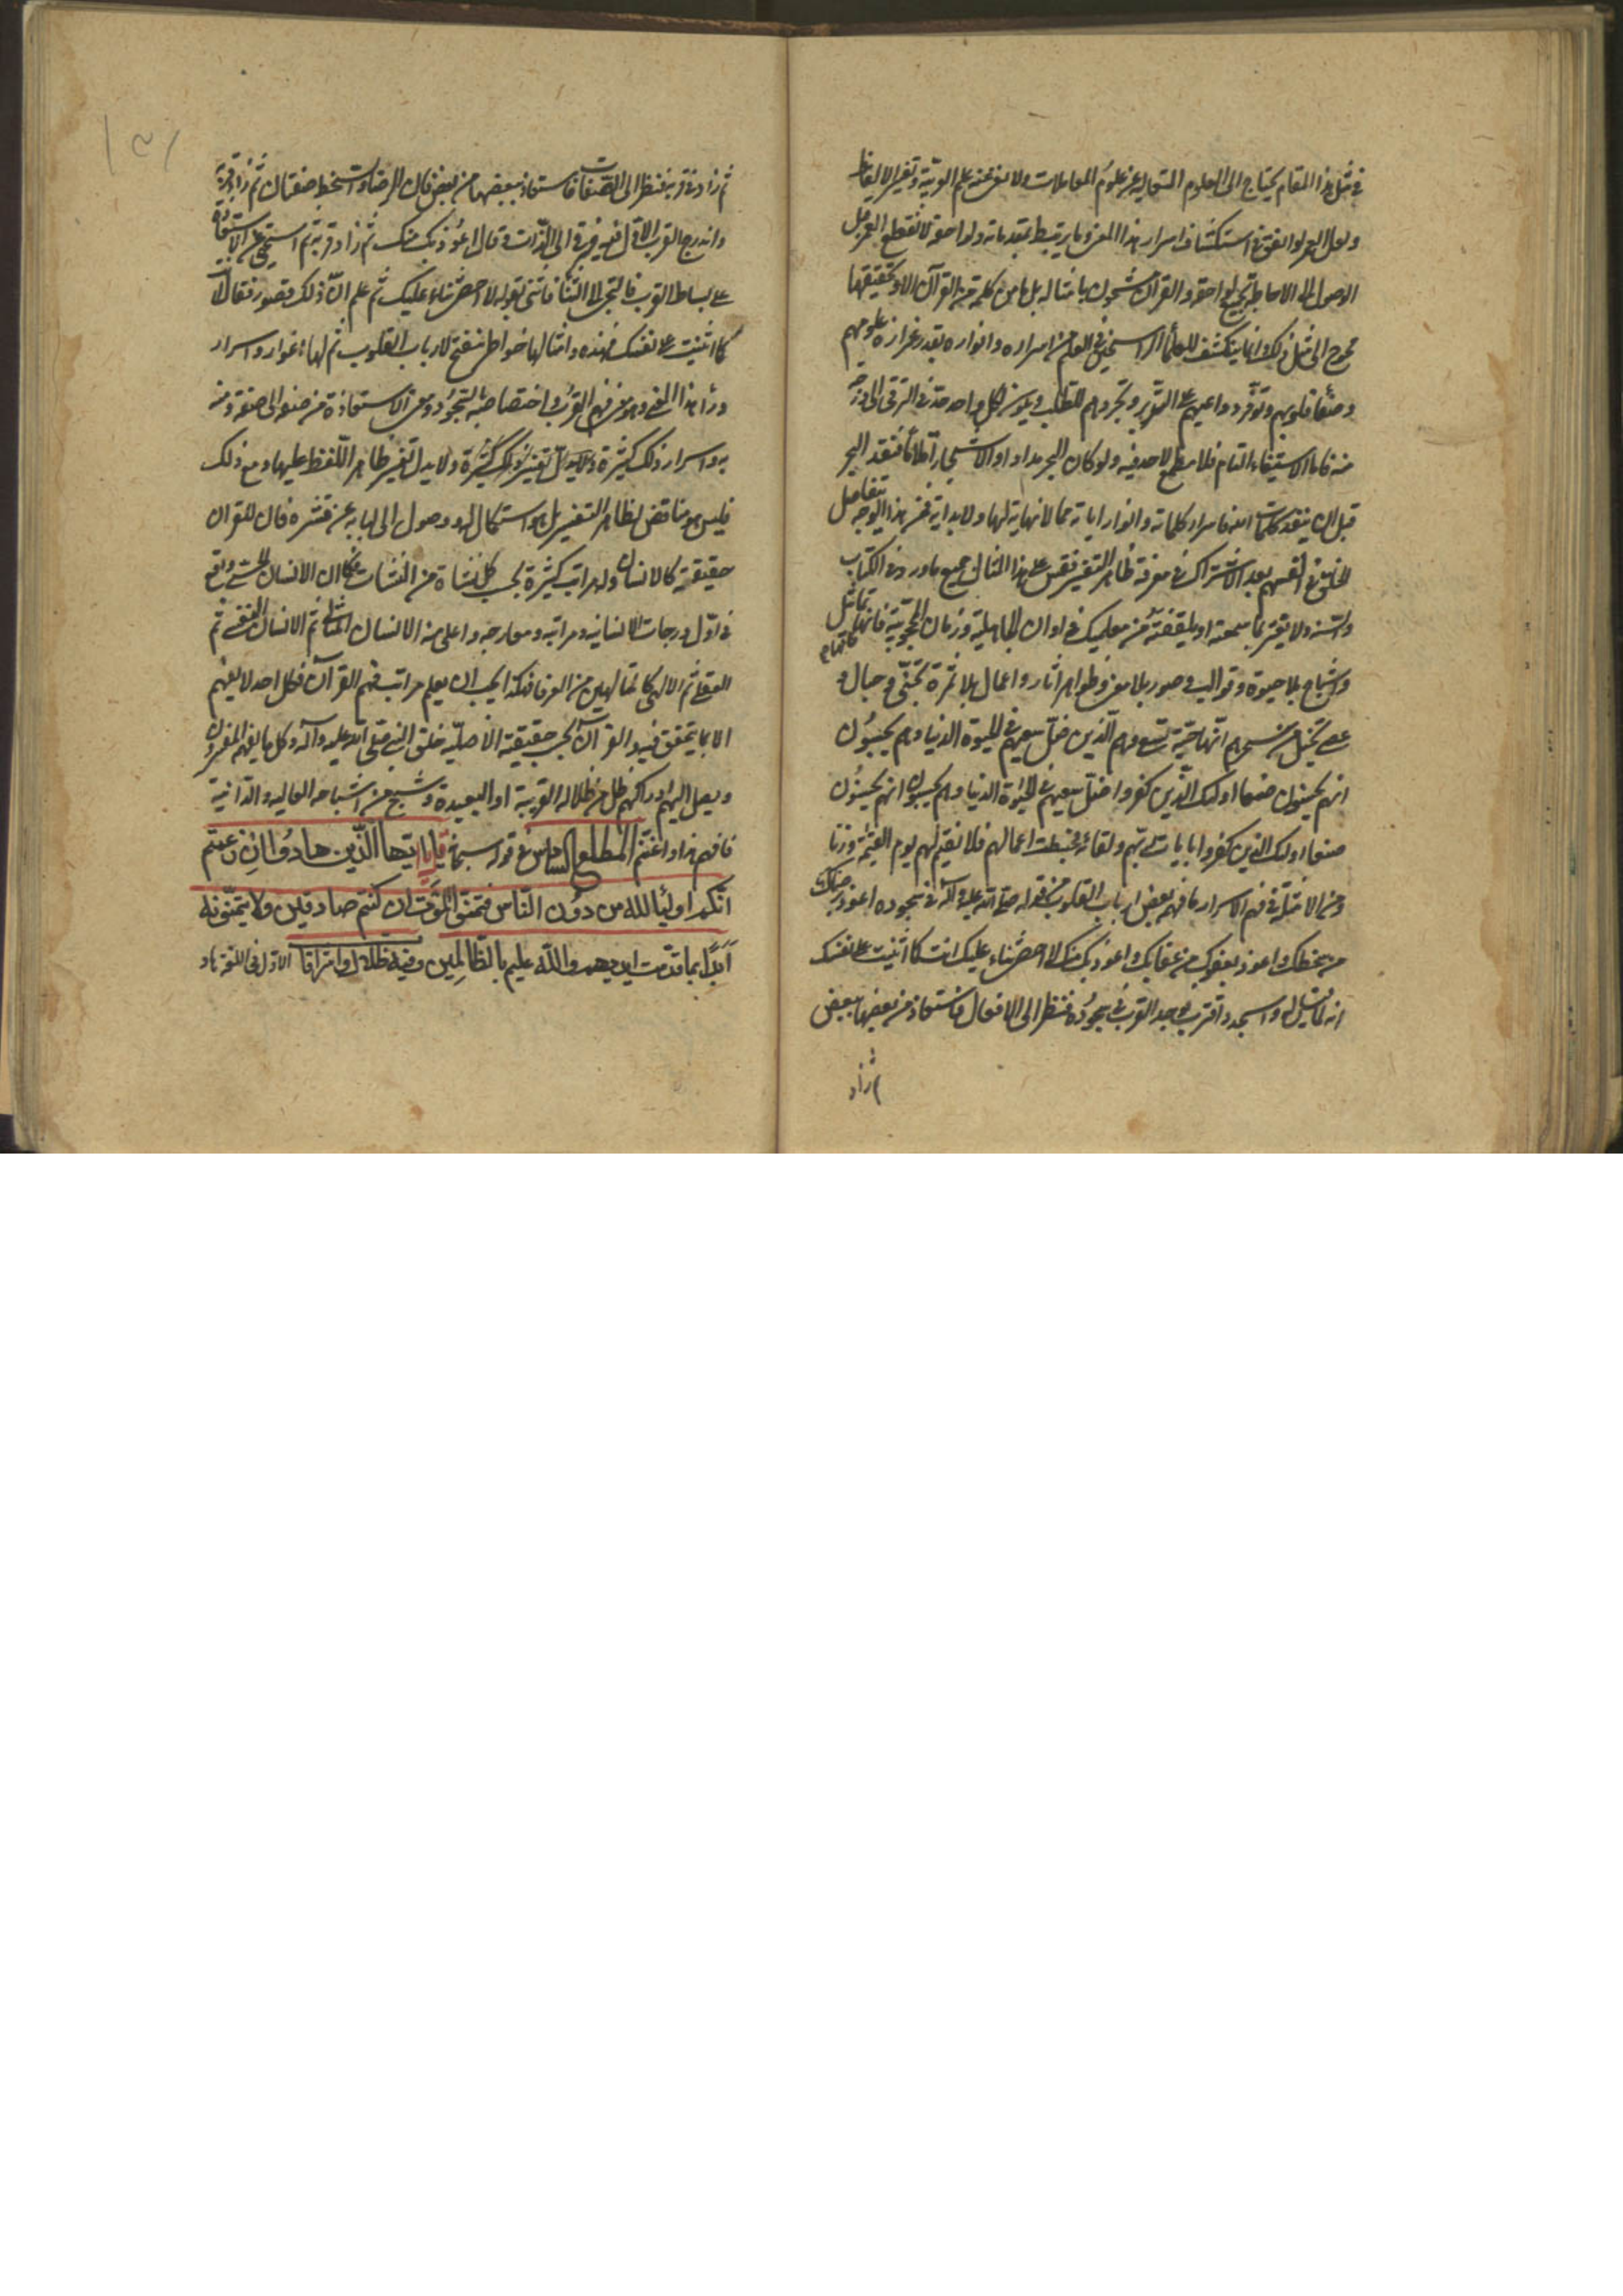 في مثل هذا المقام يحتاج الى العلوم المتعالية عن علوم المعاملات ولا يغني عنه علم العربية وتفسير الالفاظ
ولعل العمر لو انفق في استكشاف اسرار هذا المعنى وما يرتبط بمقدماته ولواحقه لانقطع العمر قبل
الوصول الى الاحاطة بجميع لواحقه والقرآن مشحون بامثاله بل ما من كلمة من القرآن الا وتحقيقها
محوج الى مثل ذلك وانما ينكشف للعلماء الراسخين في العلم من اسراره وانواره بقدر غزارة علومهم
وصفاء قلوبهم وتوفر دواعيهم على التدبر وتجردهم للطلب ويكون لكل واحد حد في الترقي الى درجة
منه فاما الاستيفاء التام فلا مطمع لاحد فيه ولو كان البحر مدادا والاشجار اقلاما فنفد البحر
قبل ان ينفد كلمات الله فاسرار كلماته وانوار اياته مما لا نهاية لها ولا بداية فمن هذا الوجه يتفاضل
الخلق في الفهم بعد الاشتراك في معرفة ظاهر التفسير فقس على هذا المثال جميع ما ورد في الكتاب
والسنة ولا تغتر بما سمعته او تلقفته من معلميك في اوان الجاهلية وزمان المحجوبية فانها تماثيل
واشباح بلا حيوة وقوالب وصور بلا معنى وظواهر اثار واعمال بلا ثمرة تجنى وحبال و
عصي يخيل من سحرهم انها حية تسعى وهم الذين ضل سعيهم في الحيوة الدنيا وهم يحسبون
انهم يحسنون صنعا اولئك الذين كفروا ضل سعيهم في الحيوة الدنيا وهم يحسبون انهم يحسنون
صنعا اولئك الذين كفروا بايات ربهم ولقائه فحبطت اعمالهم فلا نقيم لهم يوم القيمة وزنا
ومن الامثلة في فهم الاسرار ما فهم بعض ارباب القلوب من قوله صلى الله عليه وآله في سجوده اعوذ برضاك
من سخطك واعوذ بعفوك من عقابك واعوذ بك منك لا احصي ثناء عليك انت كما اثنيت على نفسك
انه لما قيل له واسجد واقترب وجد القرب في سجوده فنظر الى الافعال فاستعاذ من بعضها ببعض
ثم زاد
ثم زاد في قربه فنظر الى الصفات فاستعاذ ببعضها من بعض فان الرضا والسخط صفتان ثم زاد قربه
واندرج القرب الاول فيه فرقى الى الذات وقال اعوذ بك منك ثم زاد قربه ثم استحيى عن الاستعاذة
على بساط القرب فالتجى الى الثناء فاثنى بقوله لا احصي ثناء عليك ثم علم ان ذلك قصور فقال انت
كما اثنيت على نفسك فهذه وامثالها خواطر تنفتح لارباب القلوب ثم لها اغوار واسرار
وراء هذا المعنى وهو من فهم القرب واختصاصه بالسجود ومعنى الاستعاذة من صفة الى صفة ومنه
به واسرار ذلك كثيرة ولا يدل تفسير ظاهر اللفظ عليها ومع ذلك
فليس هو مناقض لظاهر التفسير بل هو استكمال له ووصول الى لبابه عن قشره فان للقران
حقيقة كالانسان وله مراتب كثيرة بحسب كل نشأة من النشآت فكما ان الانسان الحسي واقع
في اول درجات الانسانية ومراتبه ومعارجه واعلى منه الانسان المثالي ثم الانسان النفسي ثم
العقلي ثم الالهي كالمتالهين من العرفا فهكذا يجب ان يعلم مراتب فهم القرآن فكل احد لا يفهم
الا بما يتحقق فيه والقرآن بحسب حقيقته الاصلية خلق النبي صلى الله عليه وآله وكل ما يفهمه المفسرون
ويصل اليه ادراكهم ظل من ظلاله القريبة او البعيدة وشبح من اشباحه العالية والدانية
فافهم هذا واغتنم المطلع السادس في قوله سبحانه قل يا ايها الذين هادوا ان زعمتم
انكم اولياء لله من دون الناس فتمنوا الموت ان كنتم صادقين ولا يتمنونه
ابدا بما قدمت ايديهم والله عليم بالظالمين وفيه ظلال واشراقات الاول في اللغة هاد